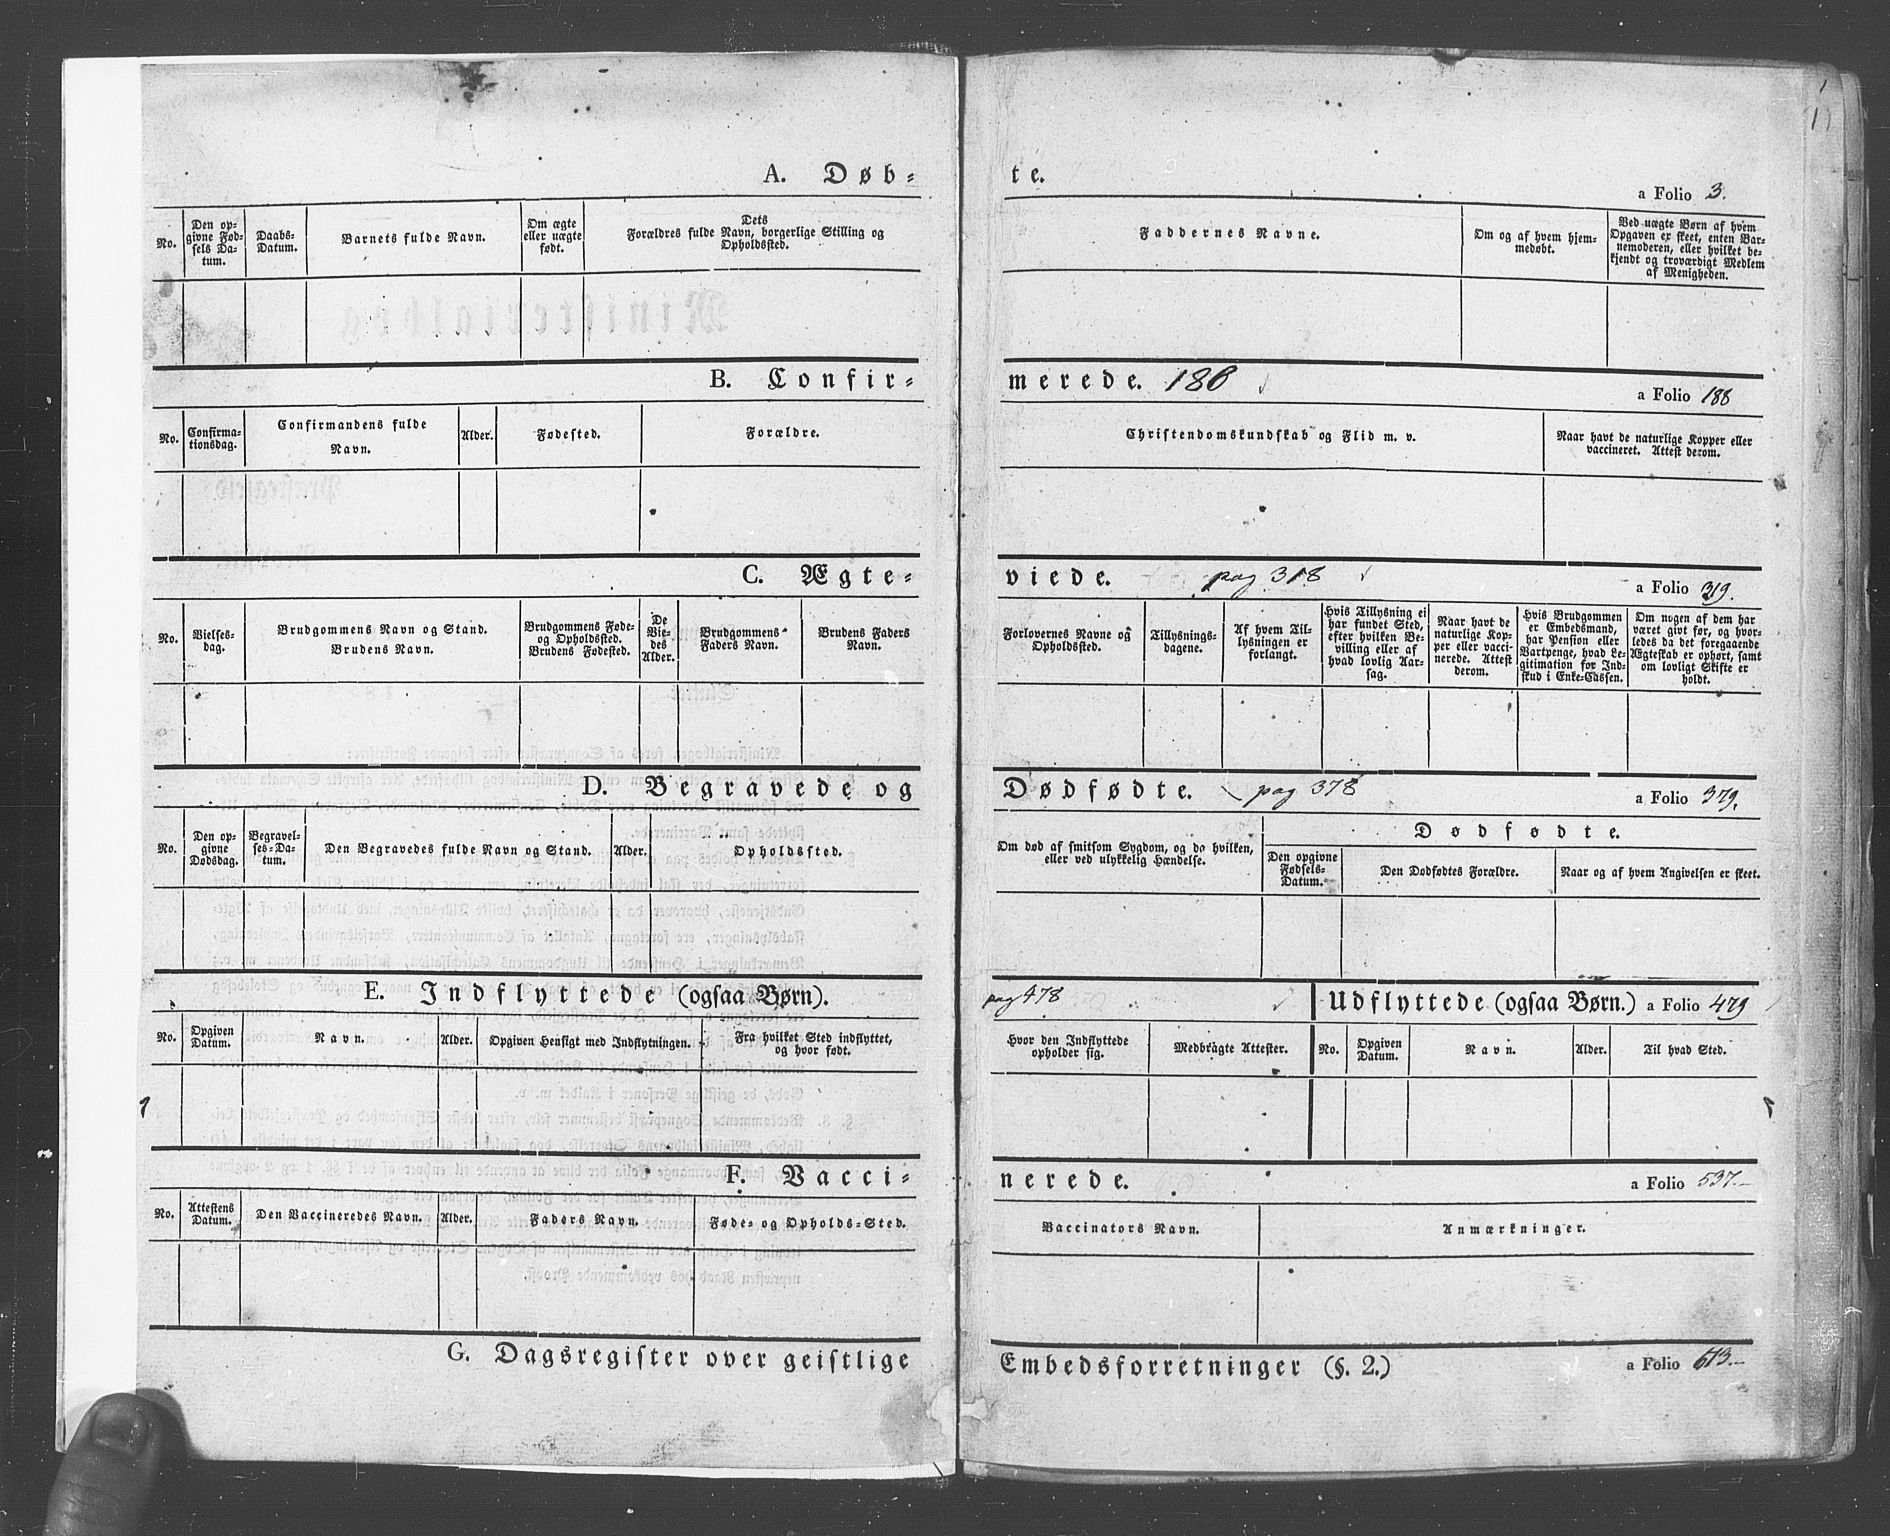 A. Døb-
te.
a Folio 3.
No.
Den op-
givne Fød-
sels Da-
tum.
Daabs-
Datum.
Barnets fulde Navn.
Om ægte
eller uægte
født.
Dets
Forældres fulde Navn, borgerlige Stilling og
Opholdsted.
Faddernes Navne.
Om og af hvem hjem-
medøbt.
Ved uægte Børn af hvem
Opgaven er skeet, enten Bar-
nemoderen, eller hvilket be-
kjendt og troværdigt Medlem
af Menigheden.
B. Confir-
merede.
a Folio 188
No.
Confirma-
tionsdag.
Confirmandens fulde
Navn.
Alder.
Fødested.
Forældre.
Christendomskundskab og Flid m. v.
Naar havt de naturlige Kopper eller
vaccineret. Attest derom.
C. Ægte-
viede. pag 318
a Folio 319.
No.
Vielses-
dag.
Brudgommens Navn og Stand.
Brudens Navn.
Brudgommens Føde-
og Opholdsted.
Brudens Fødested.
De
Vie-
des
Alder.
Brudgommens
Faders Navn.
Brudens Faders
Navn.
Forlovernes Navne og
Opholdsted.
Tillysnings-
dagene.
Af hvem Til-
lysningen er
forlangt.
Hvis Tillysning ei
har fundet Sted,
efter hvilken Be-
villing eller af
hvad lovlig Aar-
sag.
Naar havt de
naturlige Kop-
per eller vacci-
nerede. Attest
derom.
Hvis Brudgommen
er Embedsmand,
har Pension eller
Vartpenge, hvad Le-
gitimation for Ind-
skud i Enke-Cassen.
Om nogen af dem har
været givt før, og hvor-
ledes da det foregaaende
Ægteskab er ophørt, samt
om lovligt Skifte er
holdt.
D. Begravede og
Dødfødte. pag 378
a Folio 379.
No.
Den op-
givne
Dødsdag.
Begravel-
ses-Da-
tum.
Den Begravedes fulde Navn og Stand.
Alder.
Opholdssted.
Om død af smitsom Sygdom, og da hvilken,
eller ved ulykkelig Hændelse.
Dødfødte.
Den opgivne
Fødsels-
Datum.
Den Dødfødtes Forældre.
Naar og af hvem Angivelsen er skeet.
E. Indflyttede (ogsaa Børn).
pag 478
Udflyttede (ogsaa Børn.) a Folio 479
No.
Opgiven
Datum.
Navn.
Alder.
Opgiven Hensigt med Indflytningen.
Fra hvilket Sted indflyttet,
og hvor født.
Hvor den Indflyttede
opholder sig.
Medbragte Attester.
No.
Opgiven
Datum.
Navn.
Alder.
Til hvad Sted.
F. Vacci-
nerede.
a Folio 537.
No.
Attestens
Datum.
Den Vaccineredes Navn.
Alder.
Faders Navn.
Føde- og Opholds-Sted.
Vaccinators Navn.
Anmærkninger.
G. Dagsregister over geistlige
Embedsforretninger (§. 2.)
a Folio 613.